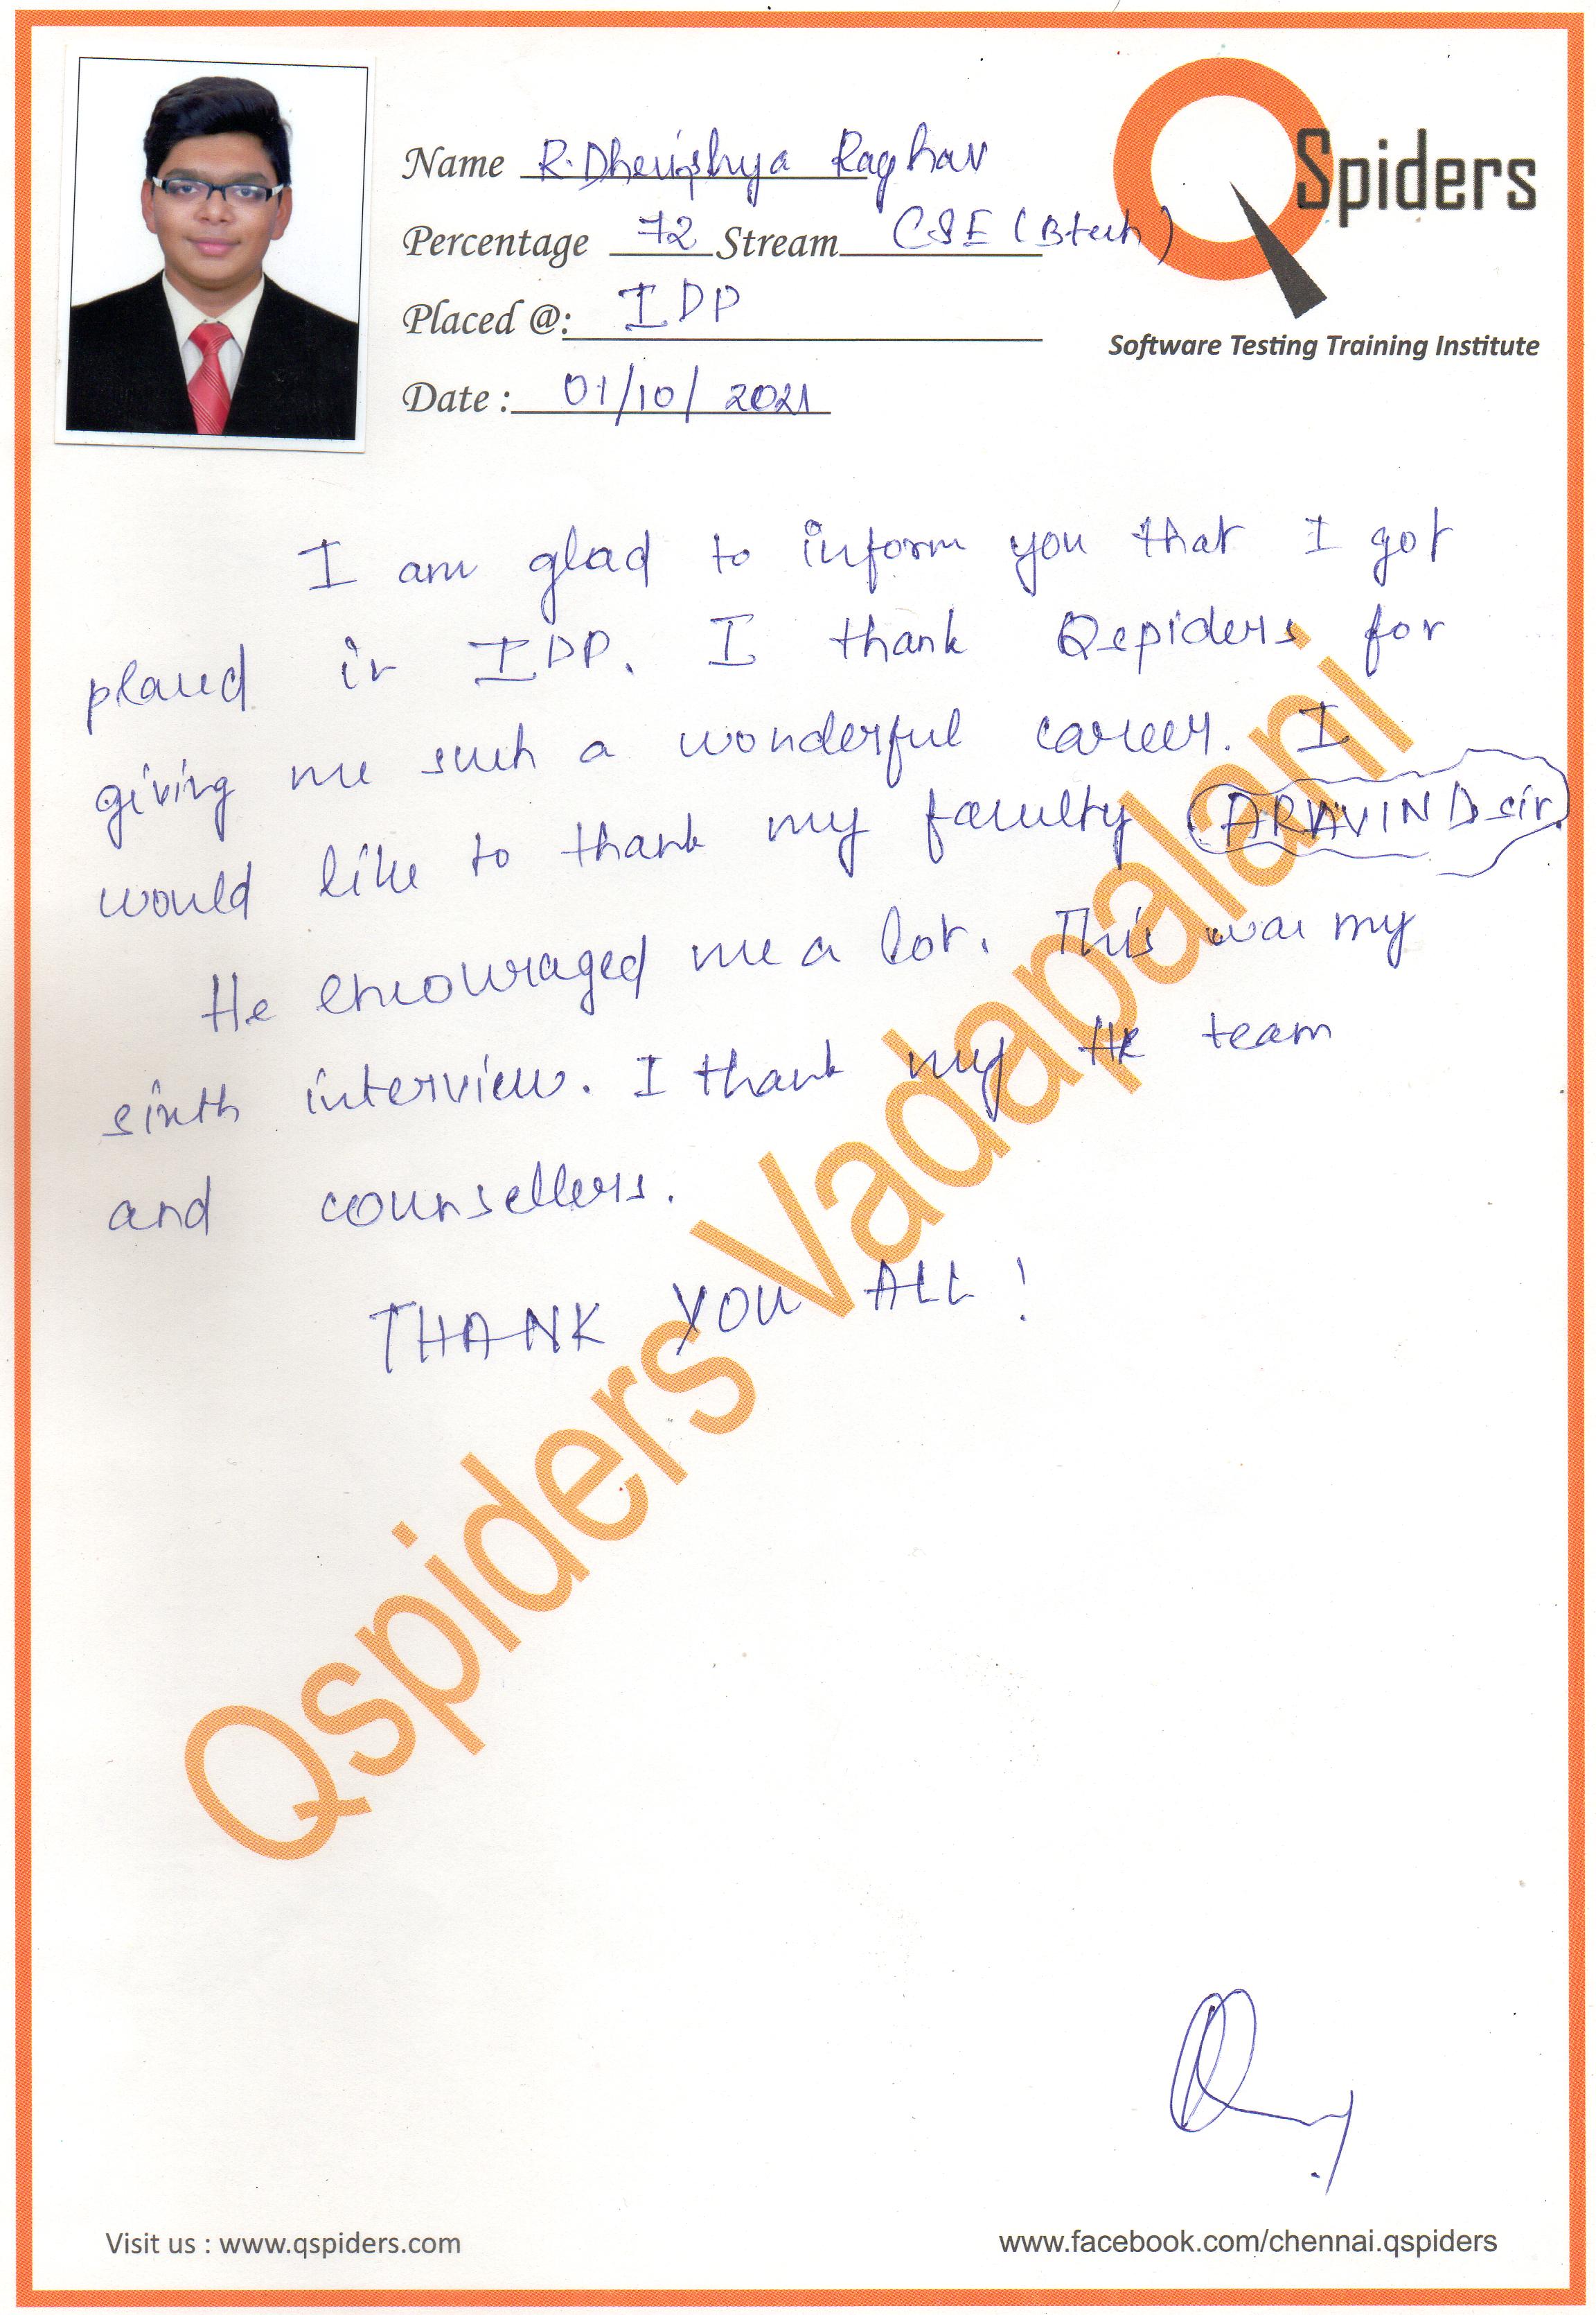 Name R. Dherishya Raghav
Percentage 72 Stream CSE (Btech)
Placed @: IDP
Date : 01/10/2021
QSpiders
Software Testing Training Institute
I am glad to inform you that I got
placed in IDP. I thank Qspiders for
giving me such a wonderful career. I
would like to thank my faculty ARAVIND sir.
He encouraged me a lot. This was my
sixth interview. I thank my HR team
and counsellers.
THANK YOU ALL !
Qspiders Vadapalani
Visit us : www.qspiders.com
www.facebook.com/chennai.qspiders